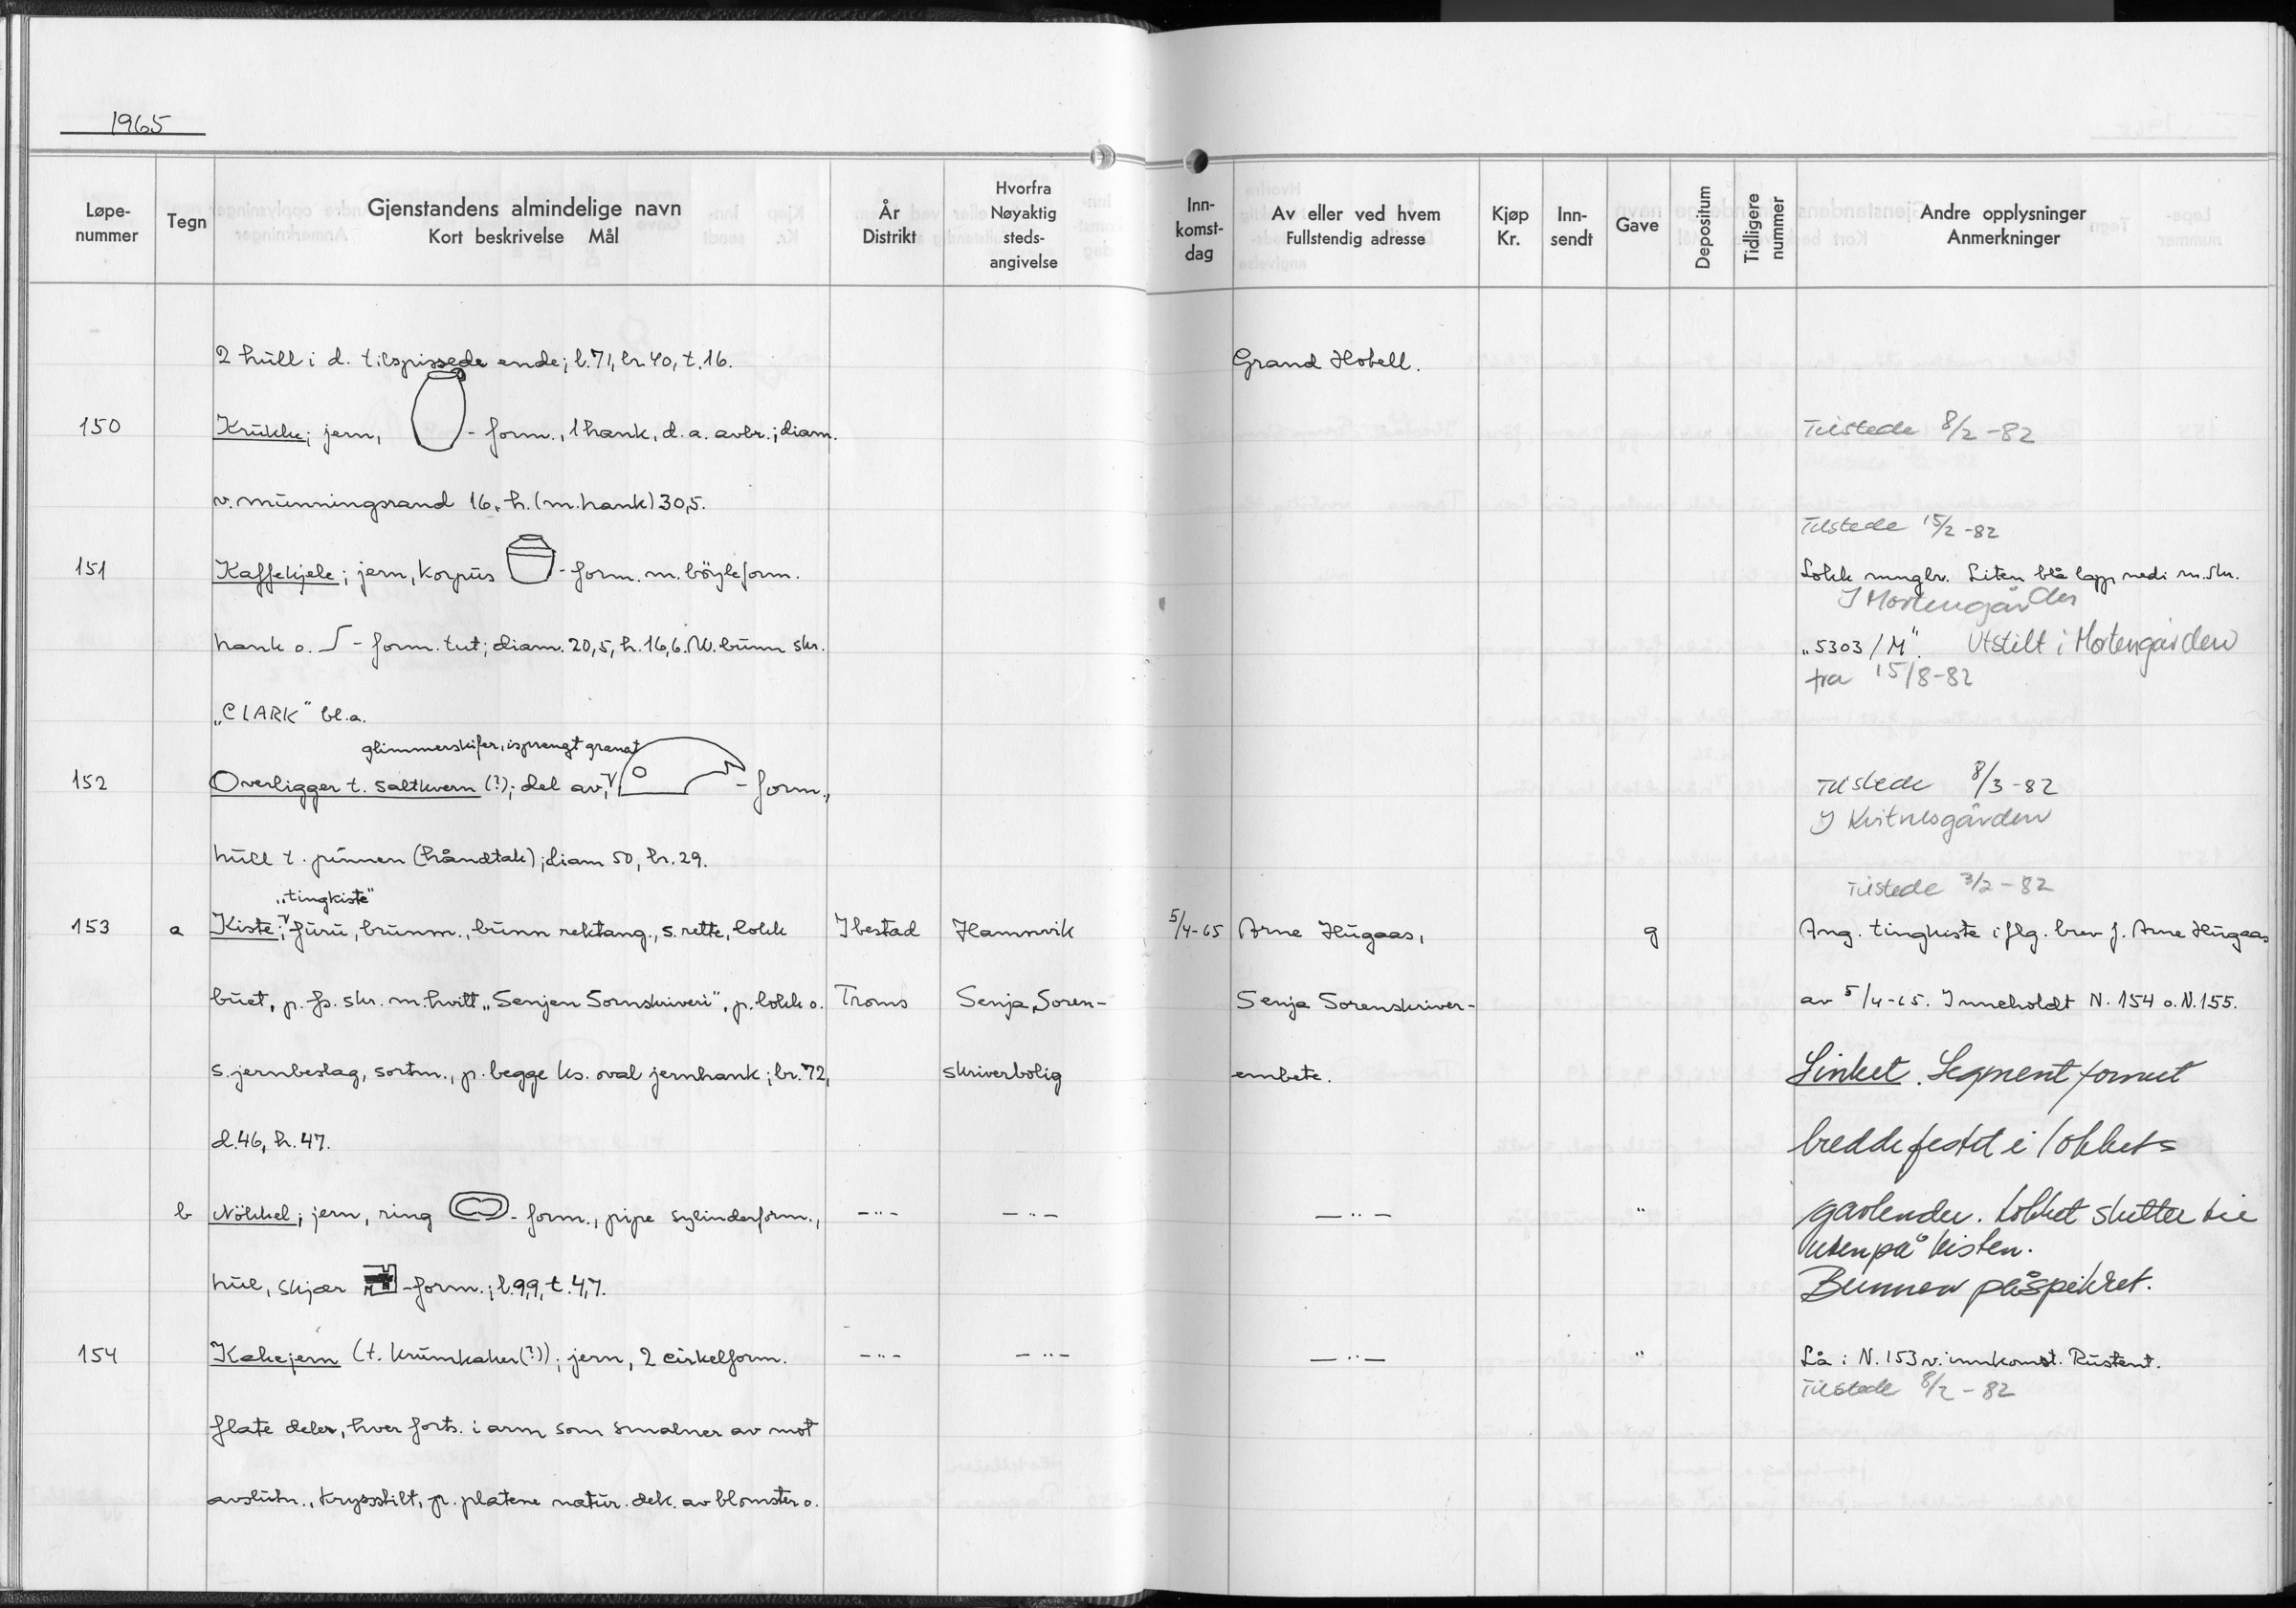 1965
Løpe-
nummer
Tegn
Gjenstandens almindelige navn
Kort beskrivelse Mål
År
Distrikt
Hvorfra
Nøyaktig
steds-
angivelse
Inn-
komst-
dag
Av eller ved hvem
Fullstendig adresse
Kjøp
Kr.
Inn-
sendt
Gave
Depositum
Tidligere
nummer
Andre opplysninger
Anmerkninger
2 hull i d. tilspissede ende; l. 71, br. 40, t. 16. Grand Hotell.
150 Krukke; jern, -form., 1 hank, d. a. avbr.; diam. Tilstede 8/2-82
v. munningsrand 16, h. (m. hank) 30,5.
Tilstede 15/2-82
151 Kaffekjele; jern, korpus -form. m. böyleform. Lokk mngler. Liten blå lapp nedi m. skr.
I Mortengården
hank o. ∫-form. tut; diam. 20,5, h. 16,6. U. bunn skr. „5303/M". Utstilt i Mortengården
fra 15/8-82
„CLARK" bl.a.
glimmerskifer, isprengt granat
152 Overligger t. saltkvern (?); del av, -form., Tilstede 8/3-82
I Kvitnesgården
hull t. pinnen (håndtak); diam 50, br. 29.
„tingkiste" Tilstede 3/2-82
153 a Kiste; furu, brunm., bunn rektang., s. rette, lokk Ibestad Hamnvik 5/4-65 Arne Hugaas, g Ang. tingkiste iflg. brev f. Arne Hugaas
buet, p. fs. skr. m. hvitt „Senjen Sornskriveri", p. lokk o. Troms Senja Soren- Senja Sorenskriver- av 5/4-65. Inneholdt N. 154 o. N. 155.
s. jernbeslag, sortm., p. begge ks. oval jernhank; br. 72, skriverbolig embete. Sinket. Segment formet
d. 46, h. 47. bredde festet i lokkets
b Nökkel; jern, ring -form., pipe sylinderform., -"- -"- -"- " gavlender. Lokket slutter
utenpå kisten.
hul, skjær -form.; l. 9,9, t. 4,7. Bunnen påspikret.
154 Kakejern (t. krumkaker(?)); jern, 2 cirkelform. -"- -"- -"- " Lå i N. 153 v. innkomst. Rustent.
Tilstede 8/2-82
flate deler, hver forts. i arm som smalner av mot
avslutn., kryssstilt, p. platene natur. dek. av blomster o.